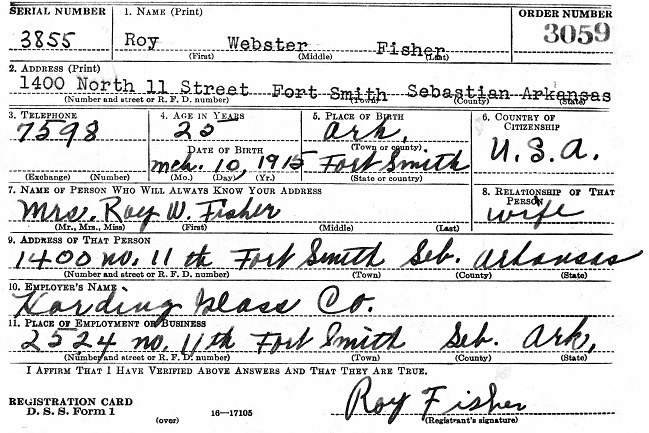 SERIAL NUMBER 1. NAME (Print) ORDER NUMBER
3855 Roy Webster Fisher 3059
(First) (Middle) (Last)
2. ADDRESS (Print)
1400 North 11 Street Fort Smith Sebastian Arkansas
(Number and street or R. F. D. number) (Town) (County) (State)
3. TELEPHONE 4. AGE IN YEARS 5. PLACE OF BIRTH 6. COUNTRY OF CITIZENSHIP
7598 25 Ark, U.S.A.
(Town or county)
DATE OF BIRTH
Mch. 10, 1915 Fort Smith
(Exchange) (Number) (Mo.) (Day) (Yr.) (State or country)
7. NAME OF PERSON WHO WILL ALWAYS KNOW YOUR ADDRESS 8. RELATIONSHIP OF THAT PERSON
Mrs. Roy W. Fisher wife
(Mr., Mrs., Miss) (First) (Middle) (Last)
9. ADDRESS OF THAT PERSON
1400 no. 11 th Fort Smith Seb. Arkansas
(Number and street or R. F. D. number) (Town) (County) (State)
10. EMPLOYER'S NAME
Harding Glass Co.
11. PLACE OF EMPLOYMENT OR BUSINESS
2524 no. 11th Fort Smith Seb. Ark,
(Number and street or R. F. D. number) (Town) (County) (State)
I AFFIRM THAT I HAVE VERIFIED ABOVE ANSWERS AND THAT THEY ARE TRUE.
REGISTRATION CARD
D. S. S. Form 1 16—17105 Roy Fisher
(over) (Registrant's signature)